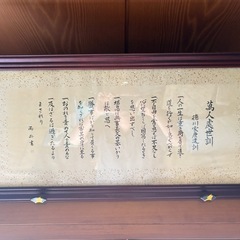 萬人處世訓
徳川家康遺訓
一人の一生は重き荷を負うて遠き
道を行くが如し急ぐべからず
一不自由を常と思えば不足なし
心に望起らば困窮したる時
を思い出すべし
一堪忍は無事長久の基いかり
は敵と思へ
一勝つ事ばかり知って負くる事
を知らざれば害其の身に至る
一おのれを責めて人を責めるな
一及ばざるは過ぎたるより
まされり